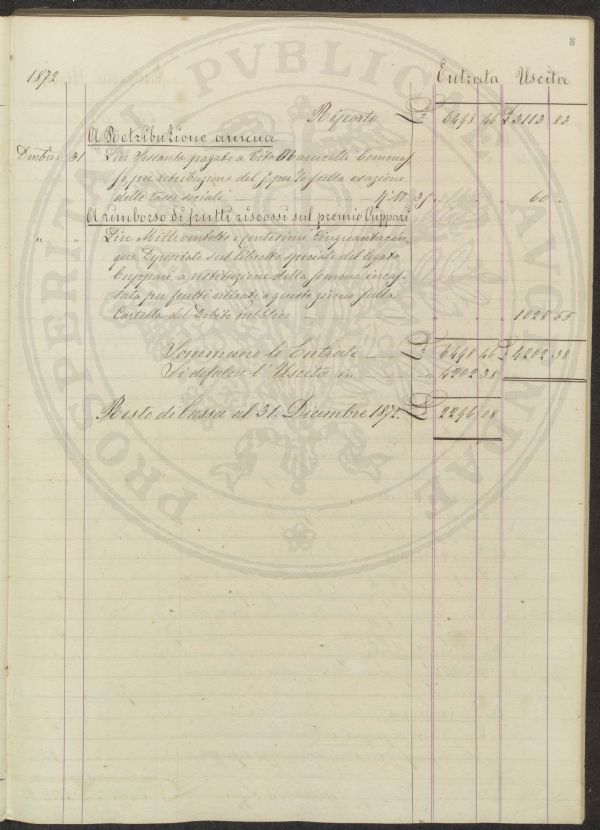 8
1872 Entrata Uscita
Riporto £ 6498 46 £ 3113 83
A Retribuzione annua
Dicembre 31 Lire Sessanta pagate a Tito Marucelli Commes-
so, per retribuzione del per la fatta esazione
delle tasse sociali 35 60
A rimborso di frutti riscossi sul premio Cuppari
" " Lire Milleventotto e centesimi Cinquantacin-
que Depositate sul libretto speciale del legato
Cuppari a restituzione della somma incas-
sata per frutti a questo giorno sulla
Cartella del Debito pubblico 1028 55
Sommano le Entrate £ 6498 46 £ 4202 38
Si defalca l'Uscita in " 4202 38
Resto di Cassa al 31. Dicembre 1872. £ 2296 08
PROSPERITATI PVBLICAE AVGENDAE